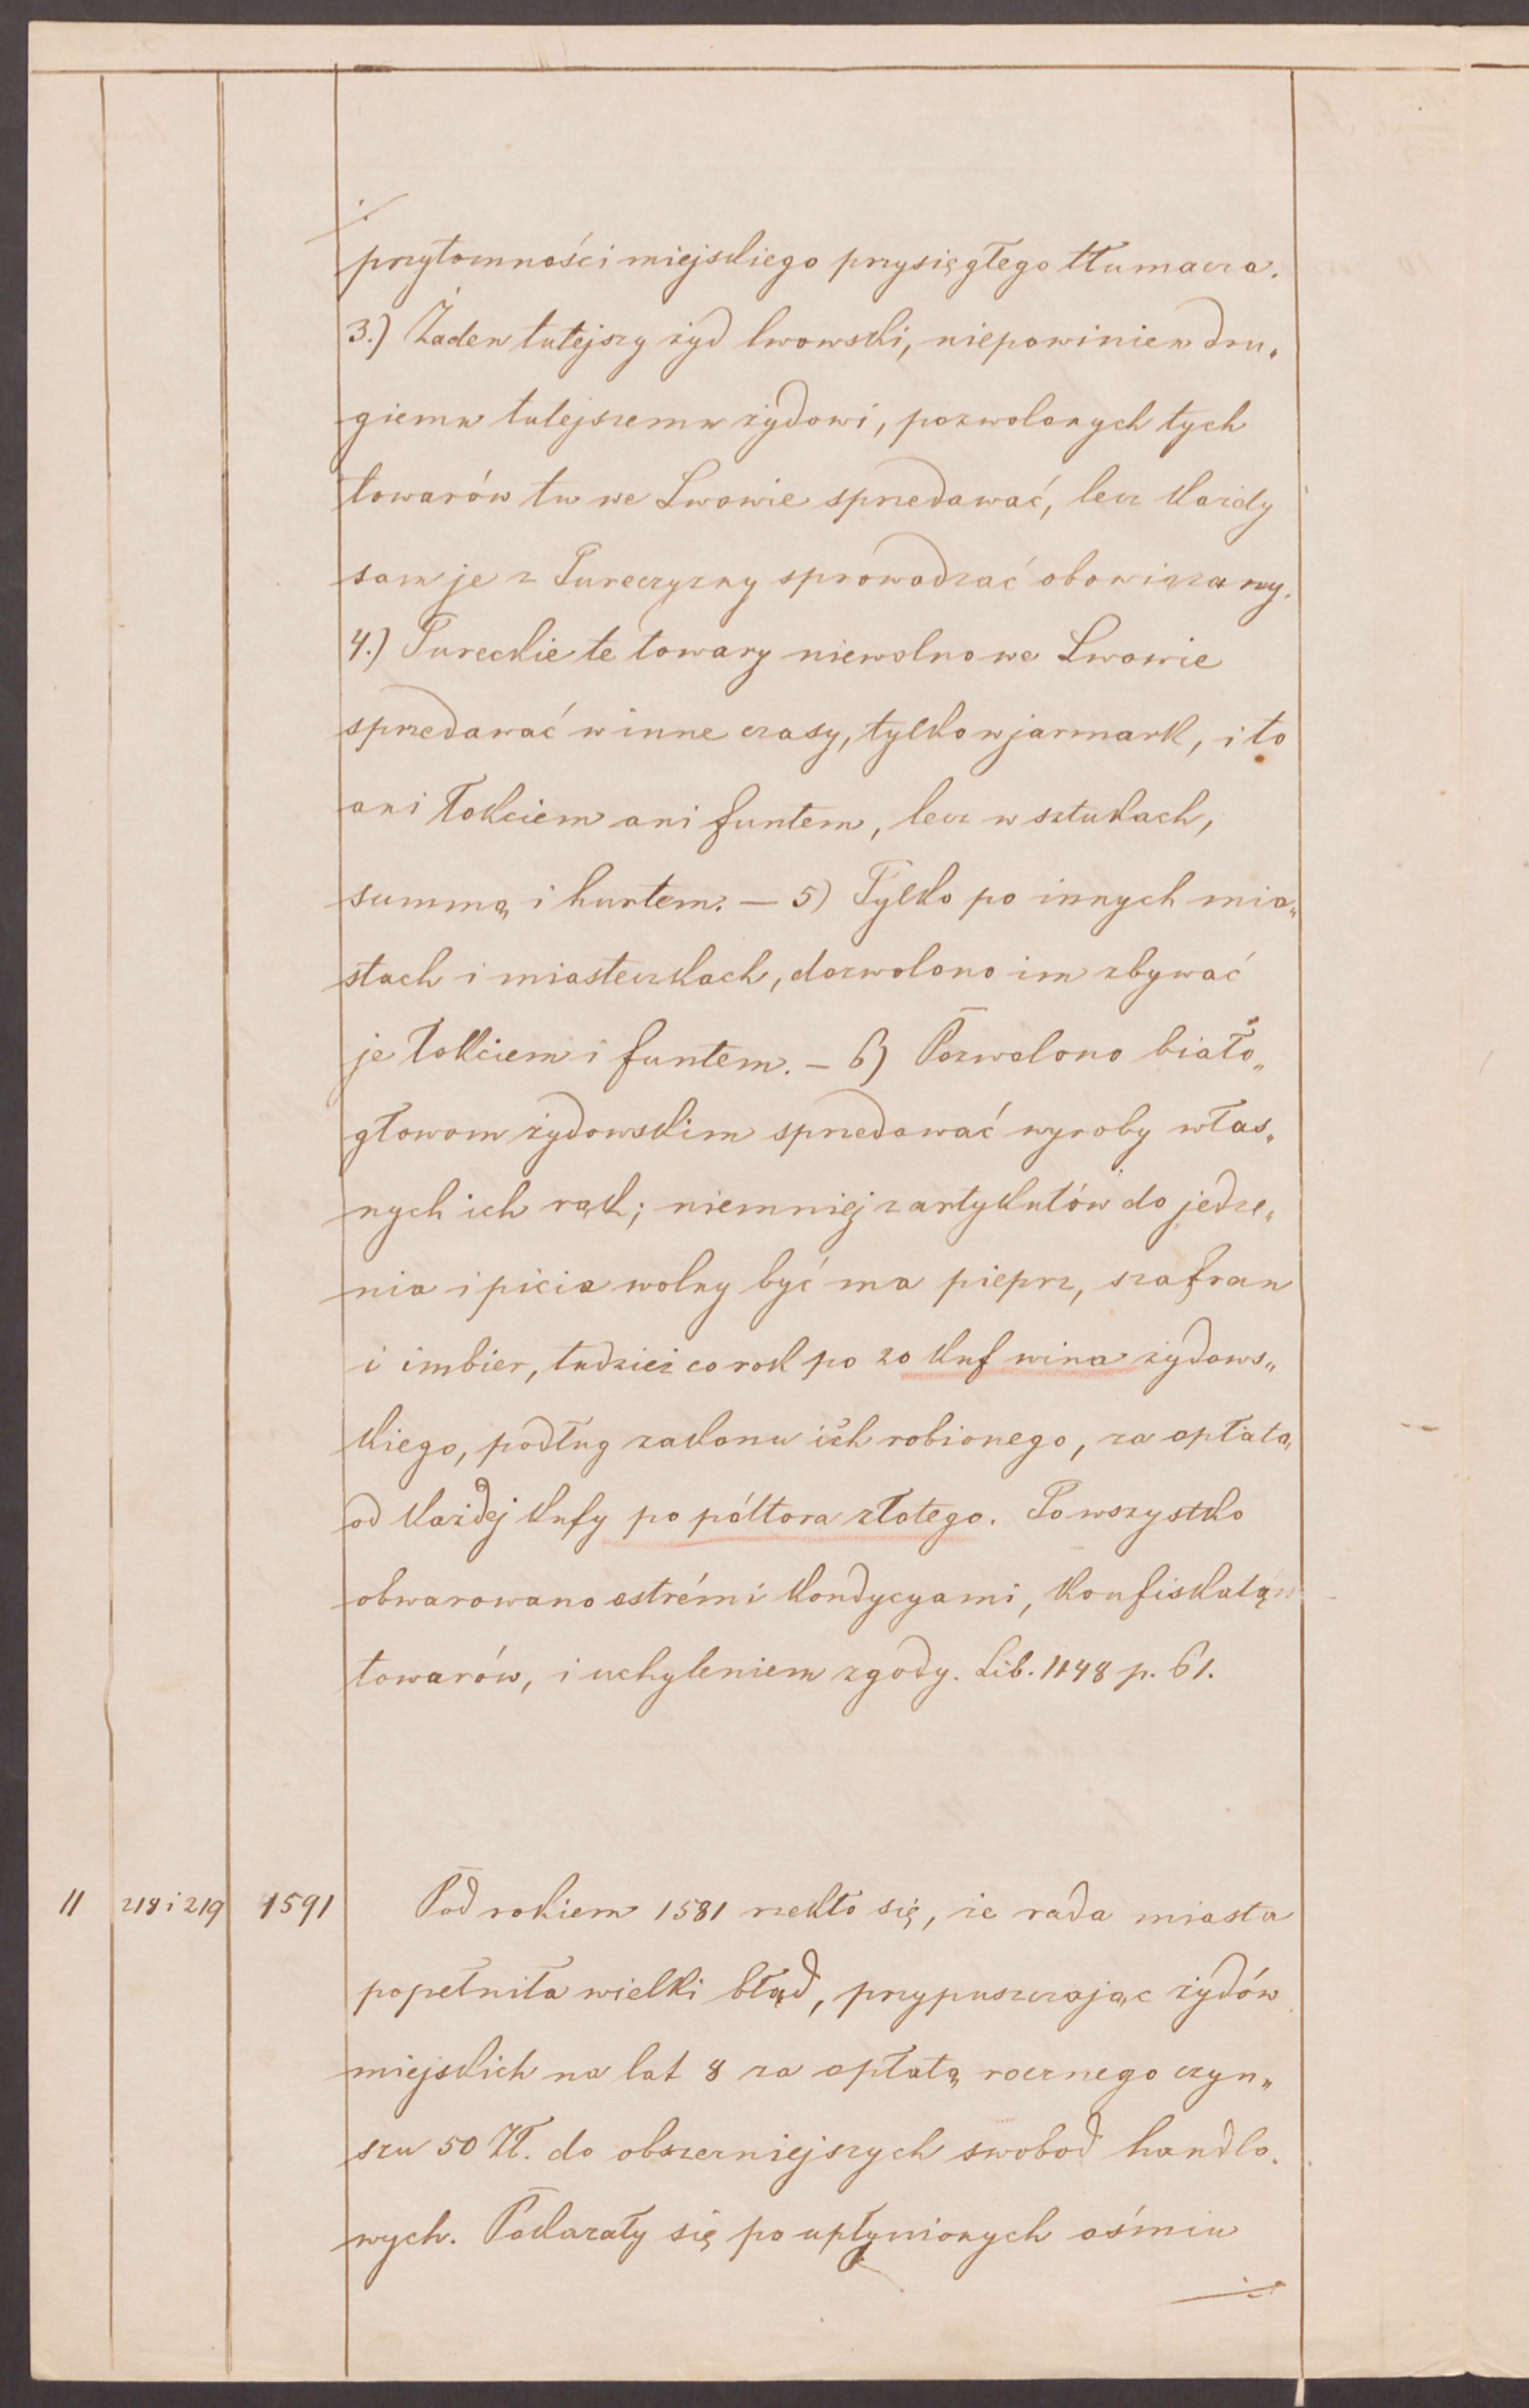 ./.
przytomności miejskiego przysięgłego tłumacza.
3.) Żaden tutejszy żyd lwowski, niepowinien dru„
giemu tutejszemu żydowi, pozwolonych tych
towarów tu we Lwowie sprzedawać, lecz każdy
sam je z Tureczyzny sprowadzać obowiązany.
4.) Tureckie te towary niewolno we Lwowie
sprzedawać w inne czasy, tylko w jarmark, i to
ani łokciem ani funtem, lecz w sztukach,
summą i hurtem. — 5) Tylko po innych mia„
stach i miasteczkach, dozwolono im zbywać
je łokciem i funtem. — 6) Pozwolono biało„
głowom żydowskim sprzedawać wyroby włas„
nych ich rąk; niemniej z artykułów do jedze„
nia i picia wolny być ma pieprz, szafran
i imbier, tudzież co rok po 20 kuf wina żydows„
kiego, podług zakonu ich robionego, za opłatą
od każdej kufy po półtora złotego. To wszystko
obwarowano ostrémi kondycyami, konfiskatą
towarów, i uchyleniem zgody. Lib. 1148 p. 61.
11 218 i 219 1591 Pod rokiem 1581 rzekło się, że rada miasta
popełniła wielki błąd, przypuszczając żydów
miejskich na lat 8 za opłatą rocznego czyn„
szu 50 Zł. do obszerniejszych swobod handlo„
wych. Pokazały się po upłynionych ośmiu
./.